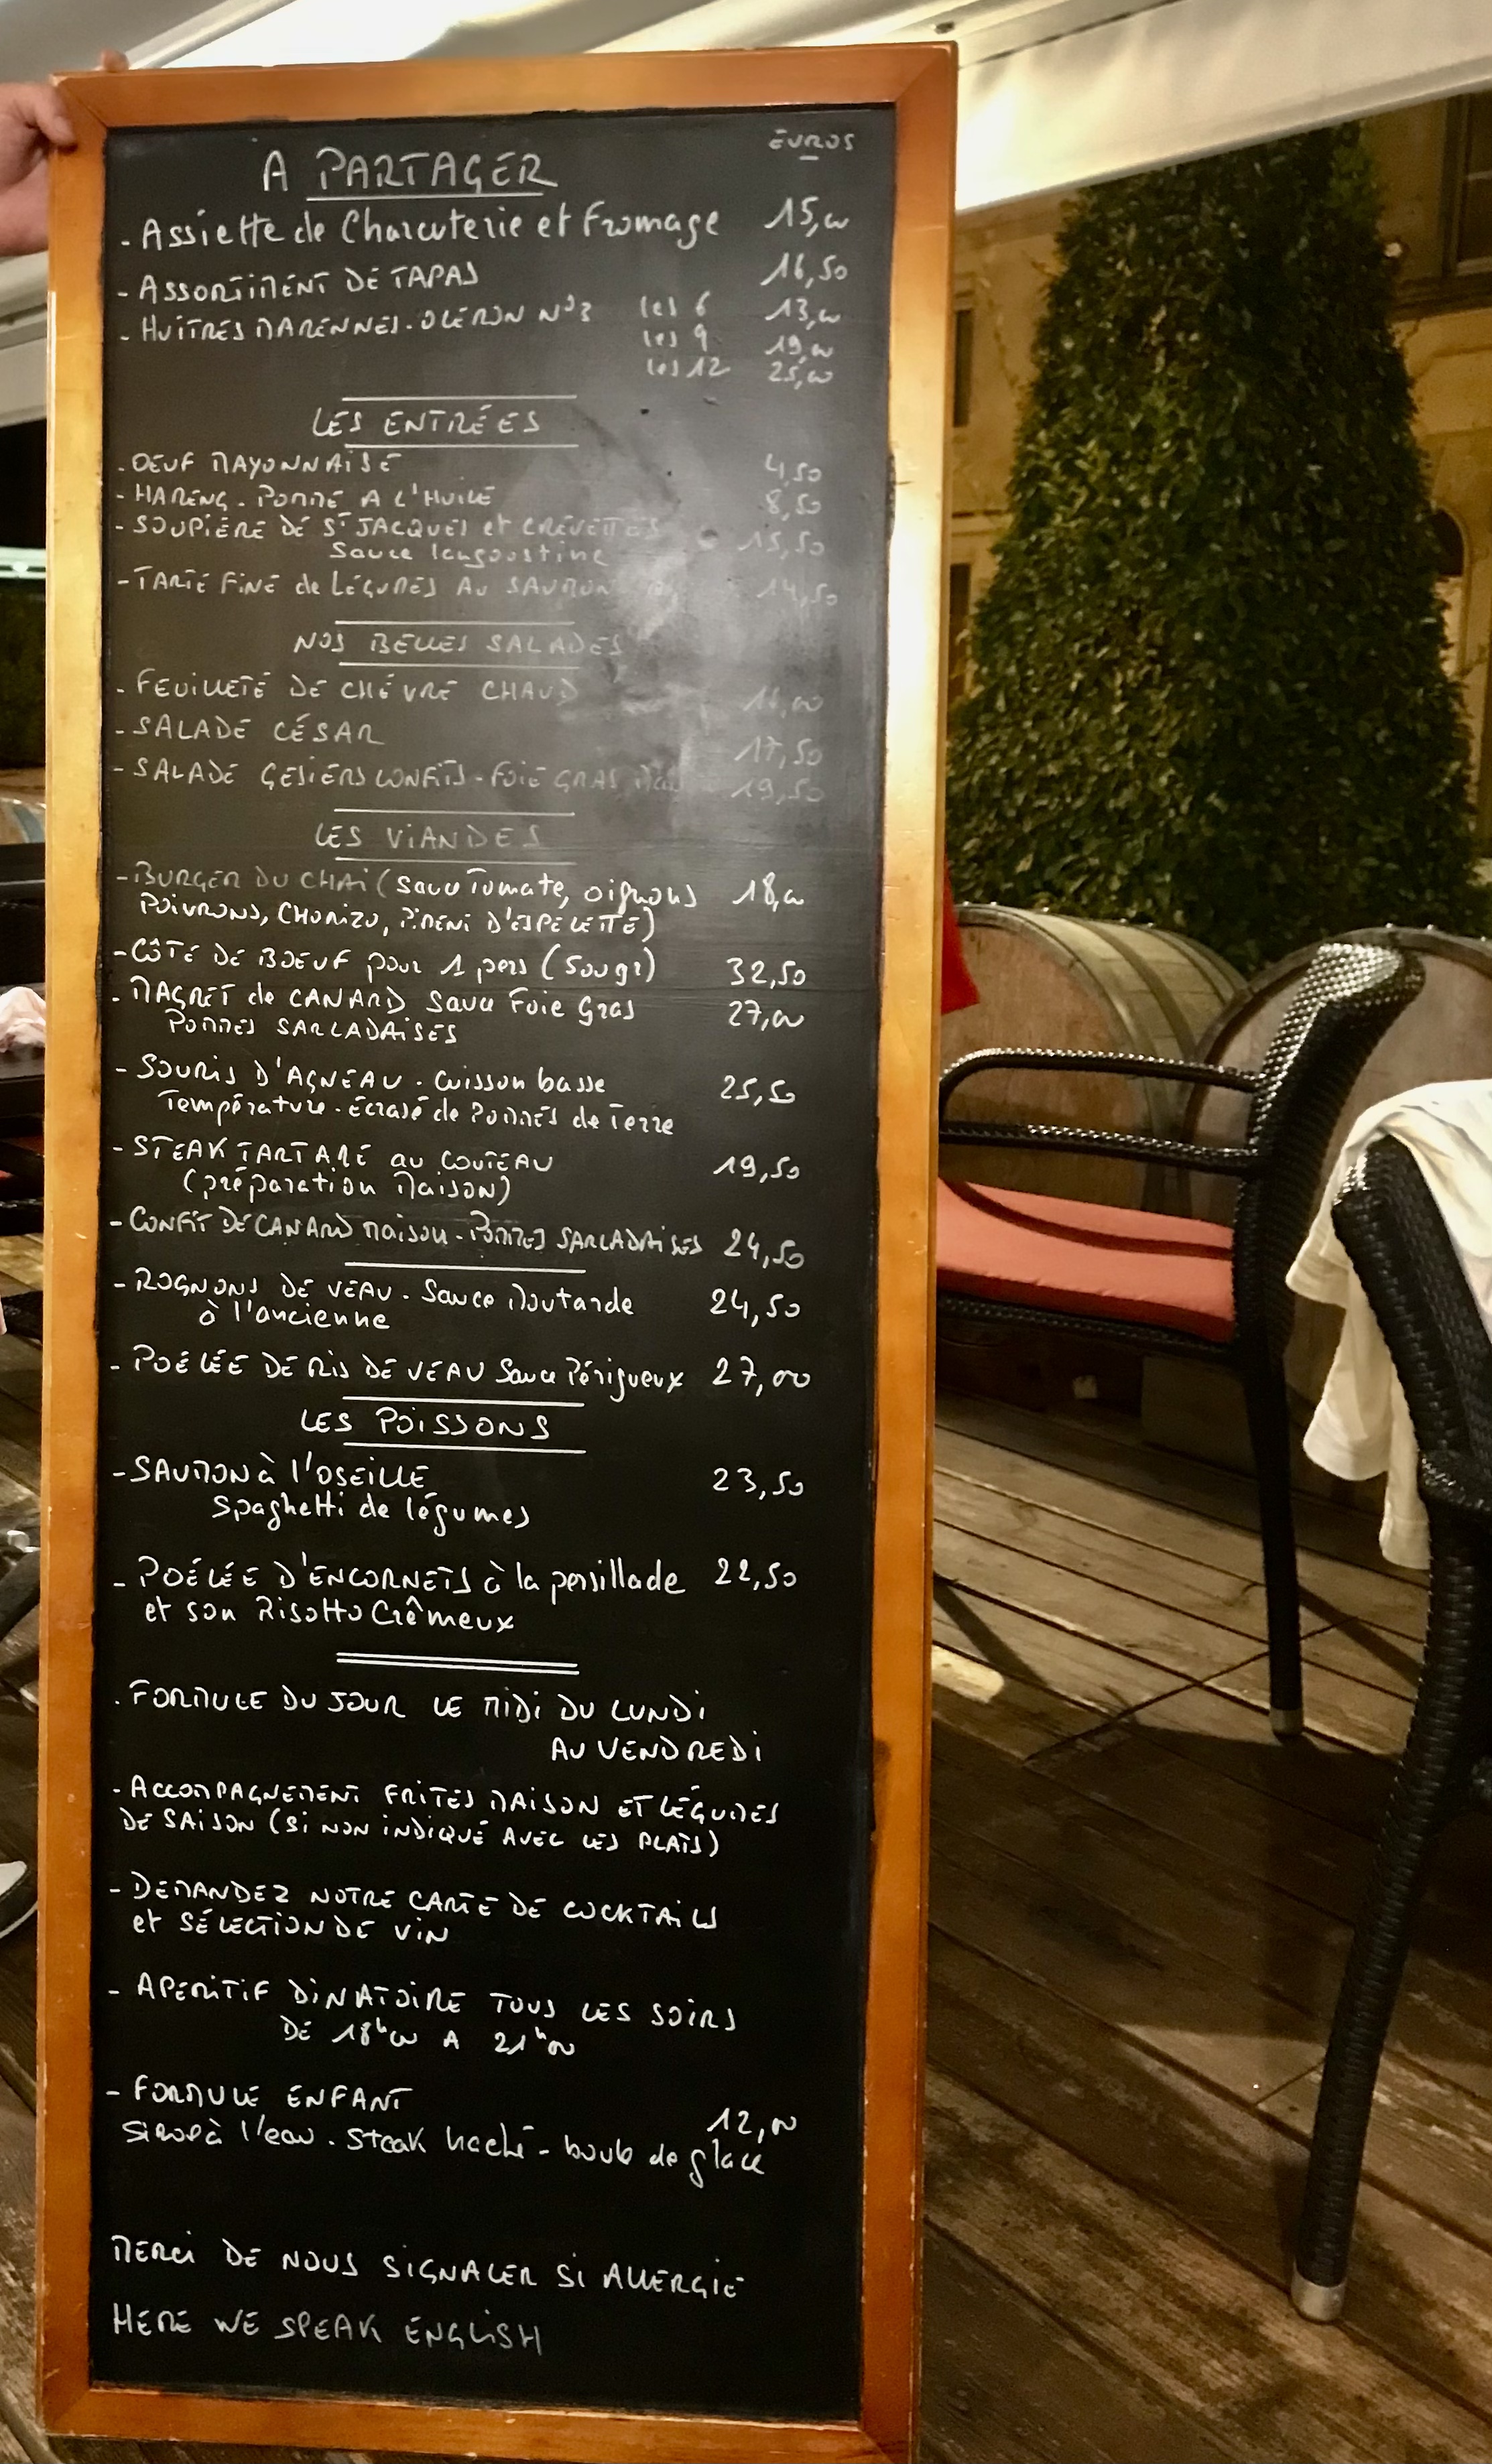 EUROS
A PARTAGER
- Assiette de Charcuterie et Fromage 15,00
- ASSORTIMENT DE TAPAS 16,50
- HUITRES MARENNES-OLERON N°3 les 6 13,00
les 9 19,00
les 12 25,00
LES ENTRÉES
- OEUF MAYONNAISE 4,50
- HARENG - POMME A L'HUILE 8,50
- SOUPIERE DE ST JACQUES et CREVETTES 15,50
Sauce langoustine
- TARTE FINE de LÉGUMES AU SAUMON 14,50
NOS BELLES SALADES
- FEUILLETÉ DE CHÉVRE CHAUD
- SALADE CÉSAR 17,50
- SALADE GESIERS CONFITS - FOIE GRAS 19,50
LES VIANDES
- BURGER DU CHAI (Sauce Tomate, oignons 18,00
POIVRONS, CHORIZO, PIMENT D'ESPELETTE)
- CÔTE DE BOEUF pour 1 pers (500gr) 32,50
- MAGRET de CANARD Sauce Foie Gras 27,00
POMMES SARLADAISES
- SOURIS D'AGNEAU - Cuisson basse 25,50
Température - Écrasé de POMMES de Terre
- STEAK TARTARE au COUTEAU 19,50
(préparation Maison)
- CONFIT DE CANARD Maison - POMMES SARLADAISES 24,50
- ROGNONS DE VEAU - Sauce Moutarde 24,50
à l'ancienne
- POÉLÉE DE RIS DE VEAU Sauce Périgueux 27,00
LES POISSONS
- SAUMON à l'OSEILLE 23,50
Spaghetti de légumes
- POÉLÉE D'ENCORNETS à la persillade 22,50
et son Risotto Crêmeux
- FORMULE DU JOUR LE MIDI DU LUNDI
AU VENDREDI
- ACCOMPAGNEMENT FRITES MAISON ET LÉGUMES
DE SAISON (SI NON INDIQUÉ AVEC LES PLATS)
- DEMANDEZ NOTRE CARTE DE COCKTAILS
et SÉLECTION DE VIN
- APERITIF DINATOIRE TOUS LES SOIRS
DE 18h00 A 21h00
- FORMULE ENFANT 12,00
Sirop à l'eau - Steak haché - boule de glace
MERCI DE NOUS SIGNALER SI ALLERGIE
HERE WE SPEAK ENGLISH